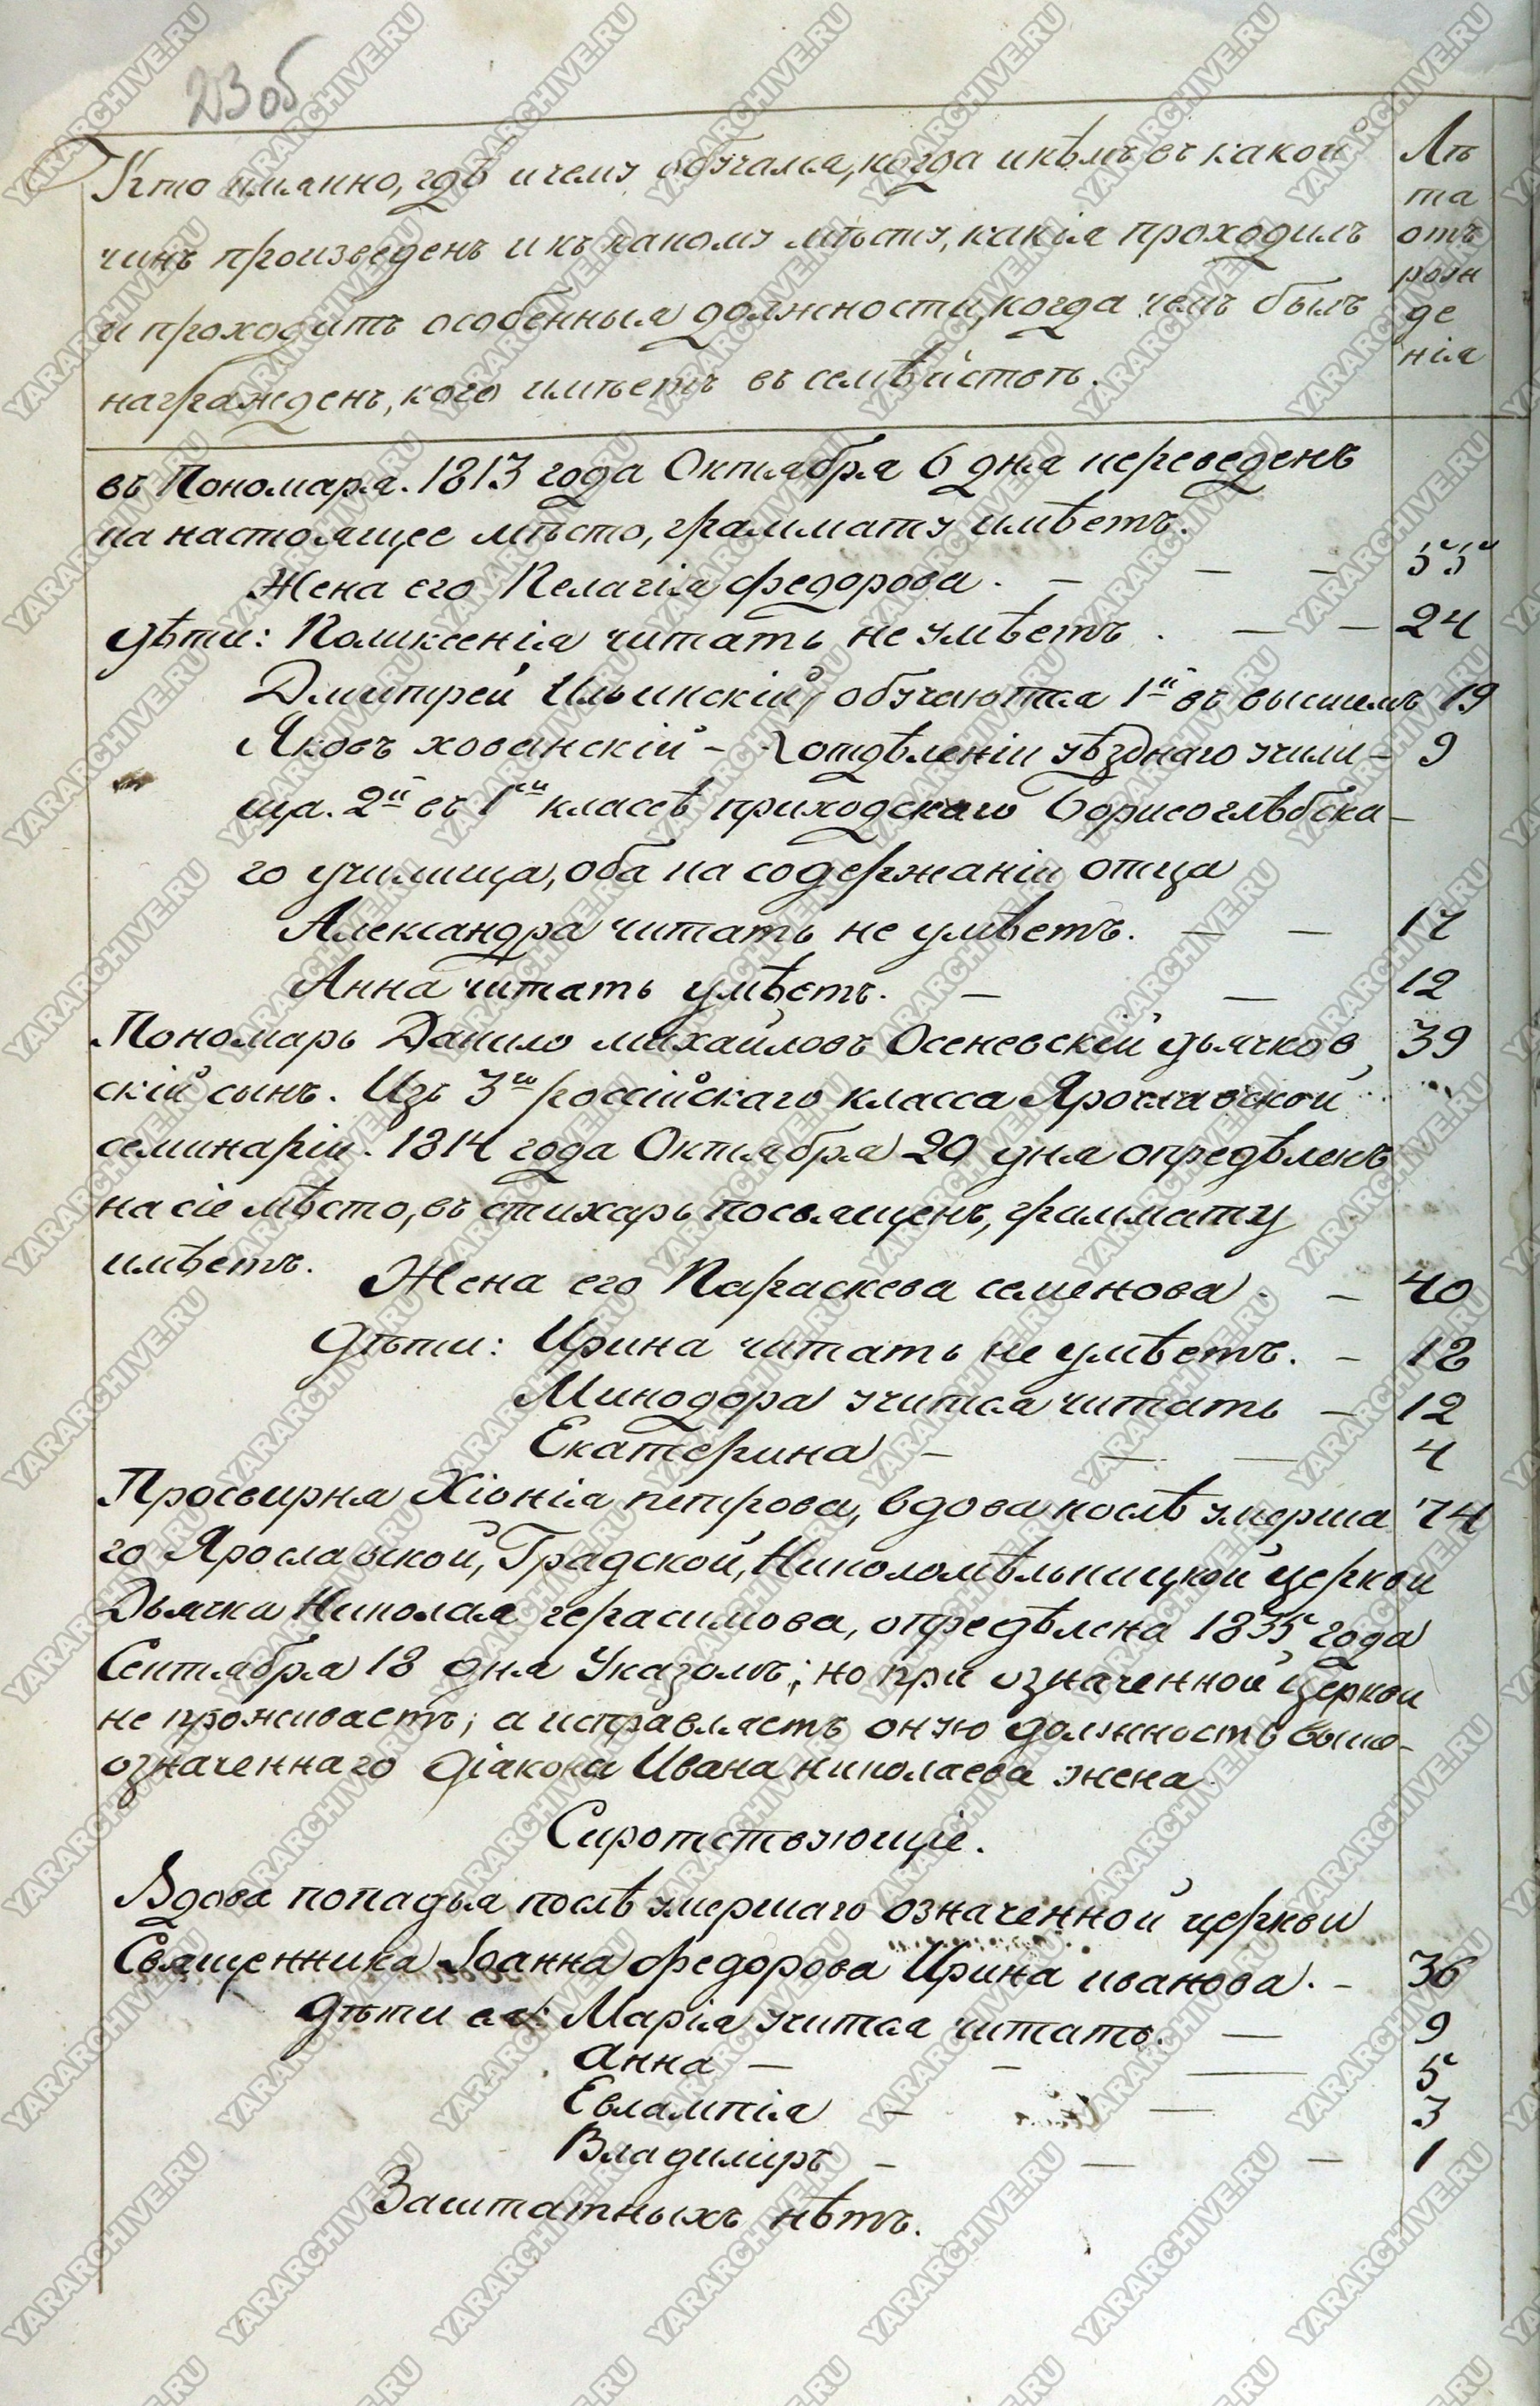 23 об
Кто имянно, гдѣ и чему обучался, когда и кѣмъ въ какой
чинъ произведенъ и къ какому мѣсту, какія проходилъ
и проходитъ особенныя должности, когда чемъ былъ
награжденъ, кого имѣетъ въ семѣйствѣ.
Лѣ
та
отъ
рож
де
нія
въ Пономаря. 1813 года Октября 6 дня переведенъ
на настоящее мѣсто, граммату имѣетъ.
Жена его Пелагія федорова. — — — 55
дѣти: Поликсенія читать не умѣетъ. — — 24
Дмитрей Ильинскій, обучаются 1й въ высшемъ 19
Яковъ хованскій - отдѣленіи уѣзднаго учили- 9
ща. 2й въ 1м классѣ приходскаго Борисоглѣбска-
го училища, оба на содержаніи отца
Александра читать не умѣетъ. — — 17
Анна читать умѣетъ. — — 12
Пономарь Данило михайловъ Осеневскій дьячков 39
скій сынъ. Изъ 3го россійскаго класса Ярославской
семинаріи. 1814 года Октября 20 дня опредѣленъ
на сіе мѣсто, въ стихарь посвященъ, граммату
имѣетъ.
Жена его Параскева семенова. — 40
Дѣти: Ирина читать не умѣетъ. — 18
Минодора учится читать — 12
Екатерина — — — 4
Просвирня Хіонія петрова, вдова послѣ умерша 74
го Ярославской, Градской, Николомѣльницкой церкви
Дьячка Николая герасимова, опредѣлена 1835 года
Сентября 18 дня Указомъ; но при означенной Церкви
не проживаетъ; а исправляетъ оную должность выше-
означеннаго діакона Ивана николаева жена.
Сиротствующіе.
Вдова попадья послѣ умершаго означенной церкви
Священника Іоанна федорова Ирина иванова. — 36
дѣти ея: Марія учится читать. — 9
Анна — — — 5
Евлампія — — 3
Владиміръ — — — 1
Заштатныхъ нѣтъ.
YARARCHIVE.RU